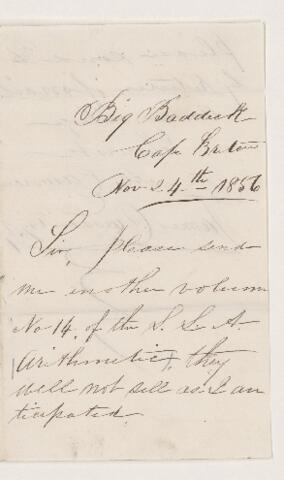 Big Baddeck
Cape Breton
Nov 24th 1856
Sir, please send
me another volum
No 14, of the S. L. A.
Arithmetic, they
well not sell as I an
ticipated.